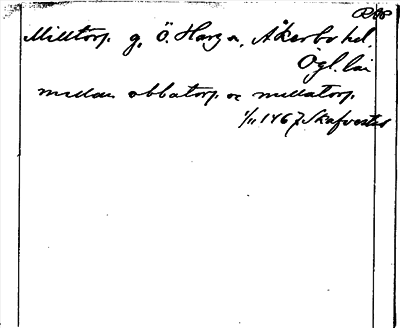 Milltorp g, Ö. Harg sn, Åkerbo hd,
Ögl. län
mellan obbatorp oc millatorp
1/11 1467 Skafvestad